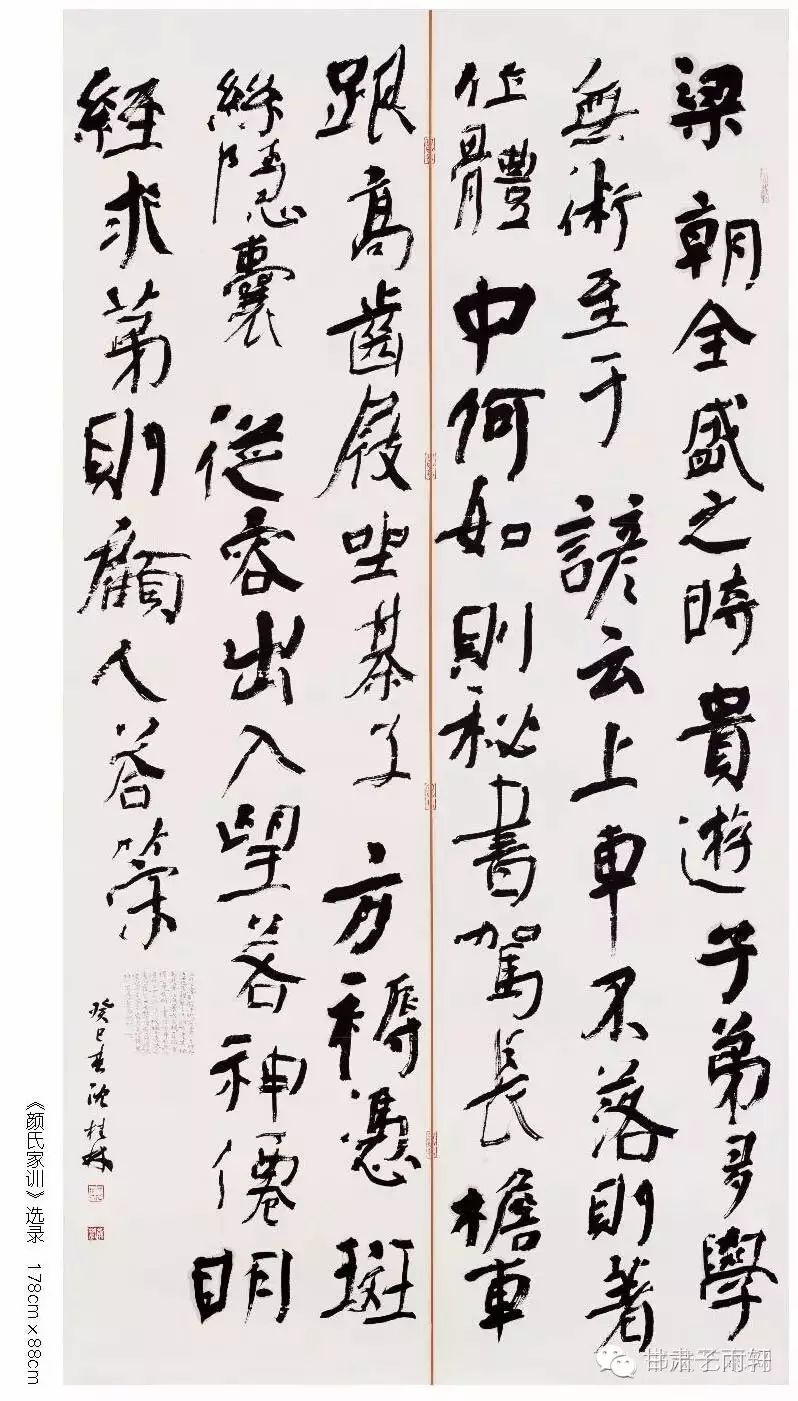 梁朝全盛之時貴遊子弟多學
無術至于諺云上車不落則著
作體中何如則秘書駕長檐車
跟高齒屐坐棊子方褥憑斑
絲隱囊從容出入望若神僊明
經求第則顧人答策
癸巳春沈桂林
《颜氏家训》选录 178cm×88cm
甘肃王雨翔